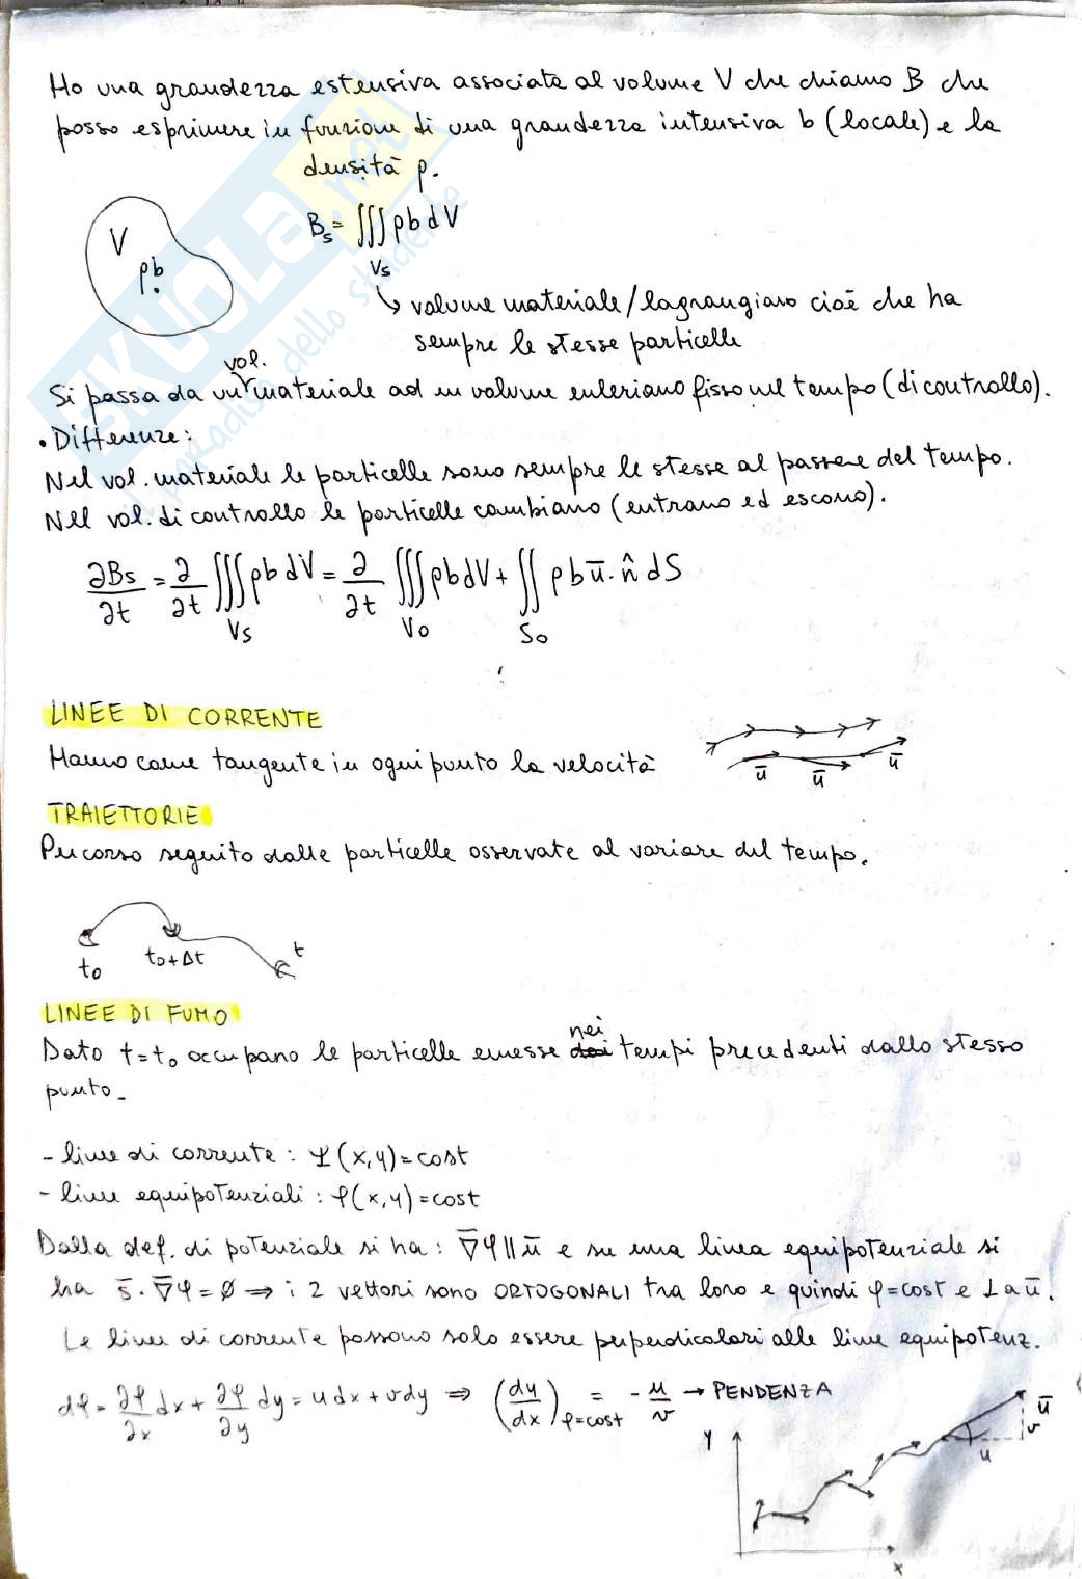 Ho una grandezza estensiva associata al volume V che chiamo B che
posso esprimere in funzione di una grandezza intensiva b (locale) e la
densità ρ.
V
ρb
B_s = ∭_{Vs} ρb dV
↳ volume materiale/lagrangiano cioè che ha
sempre le stesse particelle
Si passa da un vol. materiale ad un volume euleriano fisso nel tempo (di controllo).
• Differenze:
Nel vol. materiale le particelle sono sempre le stesse al passare del tempo.
Nel vol. di controllo le particelle cambiano (entrano ed escono).
∂Bs/∂t = ∂/∂t ∭_{Vs} ρb dV = ∂/∂t ∭_{V0} ρb dV + ∬_{S0} ρb ū · n̂ dS
LINEE DI CORRENTE
Hanno come tangente in ogni punto la velocità
ū ū ū
TRAIETTORIE
Percorso seguito dalle particelle osservate al variare del tempo.
t0 t0+Δt t
LINEE DI FUMO
Dato t=t0 occupano le particelle emesse nei tempi precedenti dallo stesso
punto.
- linee di corrente : Ψ(x,y)=cost
- linee equipotenziali : φ(x,y)=cost
Dalla def. di potenziale si ha : ∇̄φ ∥ ū e su una linea equipotenziale si
ha s̄ · ∇̄φ = ∅ ⇒ i 2 vettori sono ORTOGONALI tra loro e quindi φ=cost e ⊥ a ū.
Le linee di corrente possono solo essere perpendicolari alle linee equipotenz.
dφ = ∂φ/∂x dx + ∂φ/∂y dy = u dx + v dy ⇒ (dy/dx)_{φ=cost} = - u/v → PENDENZA
y ū v u
x
SKUOLA.net
il paradiso dello studente